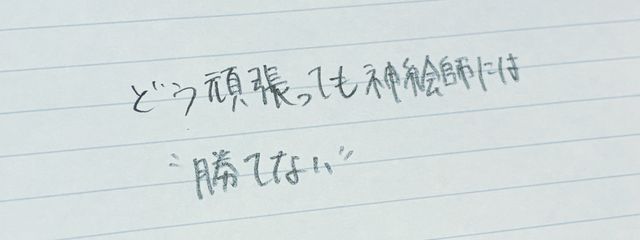 どう頑張っても神絵師には
"勝てない"